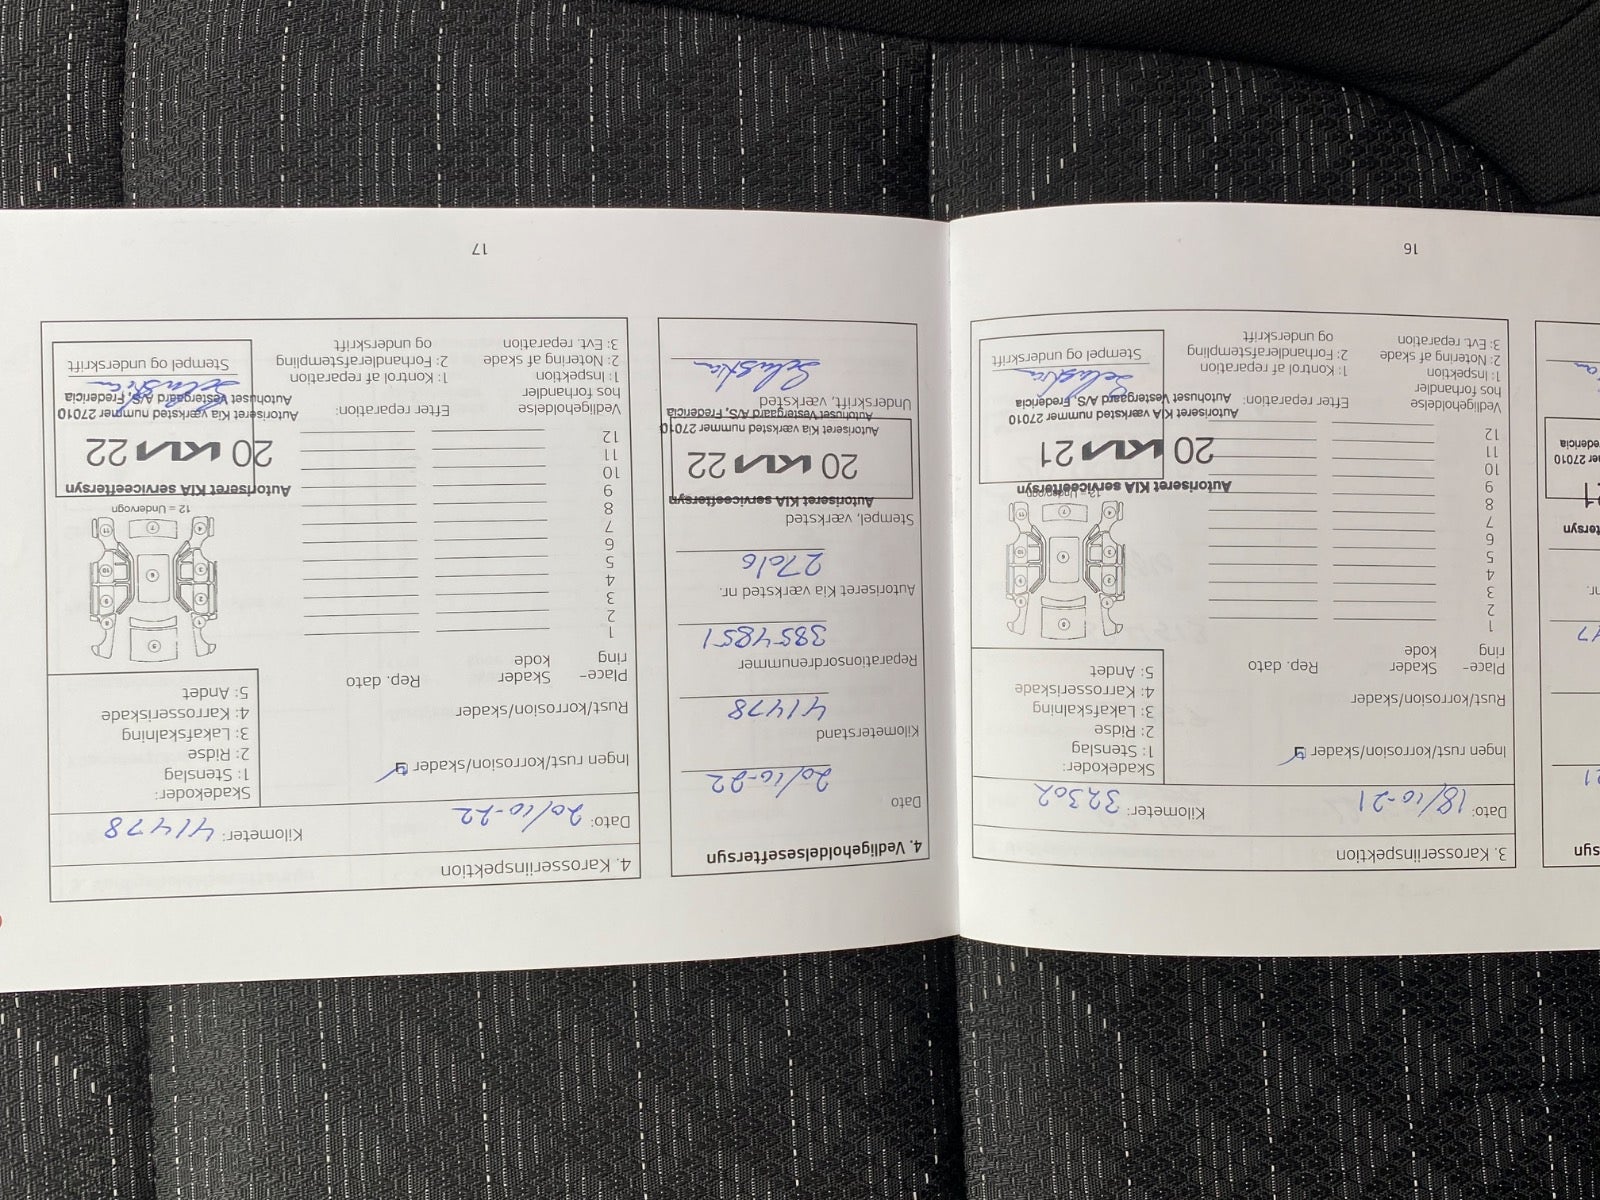 3. Karosseriinspektion
Dato: 18/10-21 Kilometer: 32302
Ingen rust/korrosion/skader
Rust/korrosion/skader
Skadekoder:
1: Stenslag
2: Ridse
3: Lakafskalning
4: Karrosseriskade
5: Andet
Place- Skader Rep. dato
ring kode
1
2
3
4
5
6
7
8
9
10
11
12
12 = Undervogn
Autoriseret KIA serviceeftersyn
20 KIA 21
Autoriseret KIA værksted nummer 27010
Autohuset Vestergaard A/S, Fredericia
Vedligeholdelse Efter reparation:
hos forhandler
1: Inspektion 1: Kontrol af reparation
2: Notering af skade 2: Forhandlerafstempling
3: Evt. reparation og underskrift
Stempel og underskrift
16
4. Vedligeholdelseseftersyn
Dato
20/10-22
Kilometerstand
41478
Reparationsordrenummer
3854851
Autoriseret Kia værksted nr.
27010
Stempel, værksted
Autoriseret KIA serviceeftersyn
20 KIA 22
Autoriseret Kia værksted nummer 27010
Autohuset Vestergaard A/S, Fredericia
Underskrift, værksted
4. Karosseriinspektion
Dato: 20/10-22 Kilometer: 41478
Ingen rust/korrosion/skader
Rust/korrosion/skader
Skadekoder:
1: Stenslag
2: Ridse
3: Lakafskalning
4: Karrosseriskade
5: Andet
Place- Skader Rep. dato
ring kode
1
2
3
4
5
6
7
8
9
10
11
12
12 = Undervogn
Autoriseret KIA serviceeftersyn
20 KIA 22
Autoriseret KIA værksted nummer 27010
Autohuset Vestergaard A/S, Fredericia
Vedligeholdelse Efter reparation:
hos forhandler
1: Inspektion 1: Kontrol af reparation
2: Notering af skade 2: Forhandlerafstempling
3: Evt. reparation og underskrift
Stempel og underskrift
17